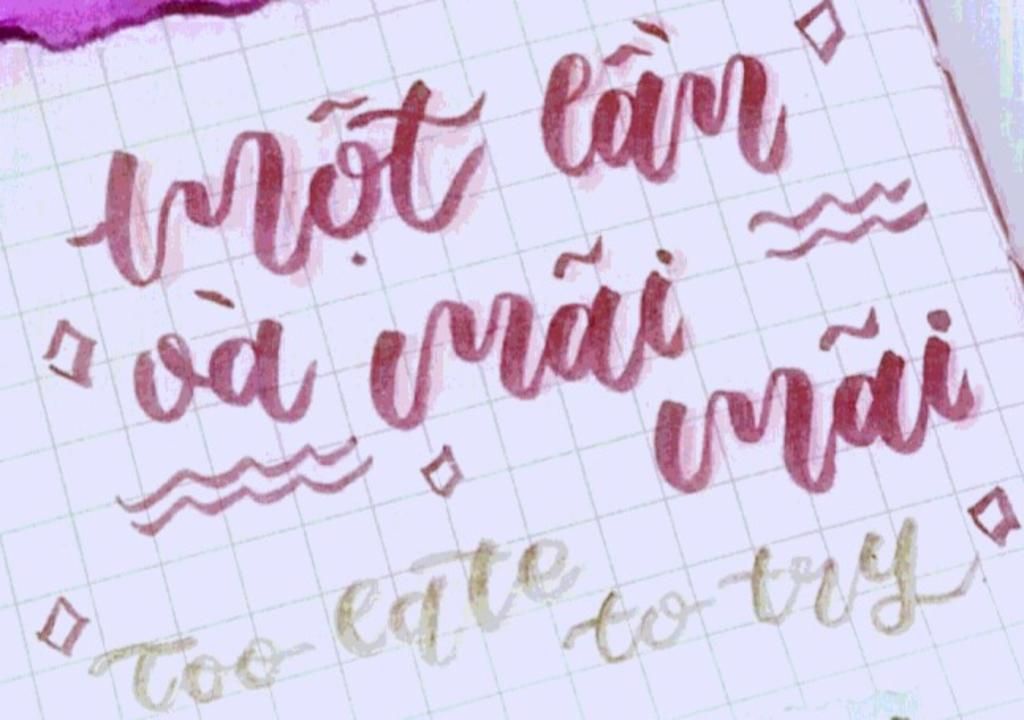 một lần
và mãi
mãi
too late to try